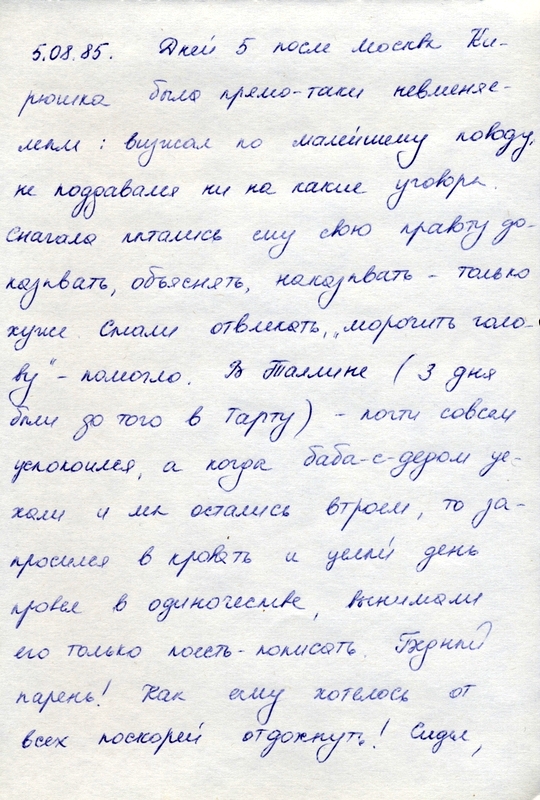 5.08.85. Дней 5 после Москвы Ки-
рюшка был прямо-таки невменяе-
мым: визжал по малейшему поводу,
не поддавался ни на какие уговоры.
Сначала пытались ему свою правоту до-
казывать, объяснять, наказывать - только
хуже. Стали отвлекать, "морочить голо-
ву" - помогло. В Таллине (3 дня
были до того в Тарту) - почти совсем
успокоился, а когда баба-с-дедом уе-
хали и мы остались втроем, то за-
просился в кровать и целый день
провел в одиночестве, вынимали
его только поесть-пописать. Бедный
парень! Как ему хотелось от
всех поскорей отдохнуть! Сидел,